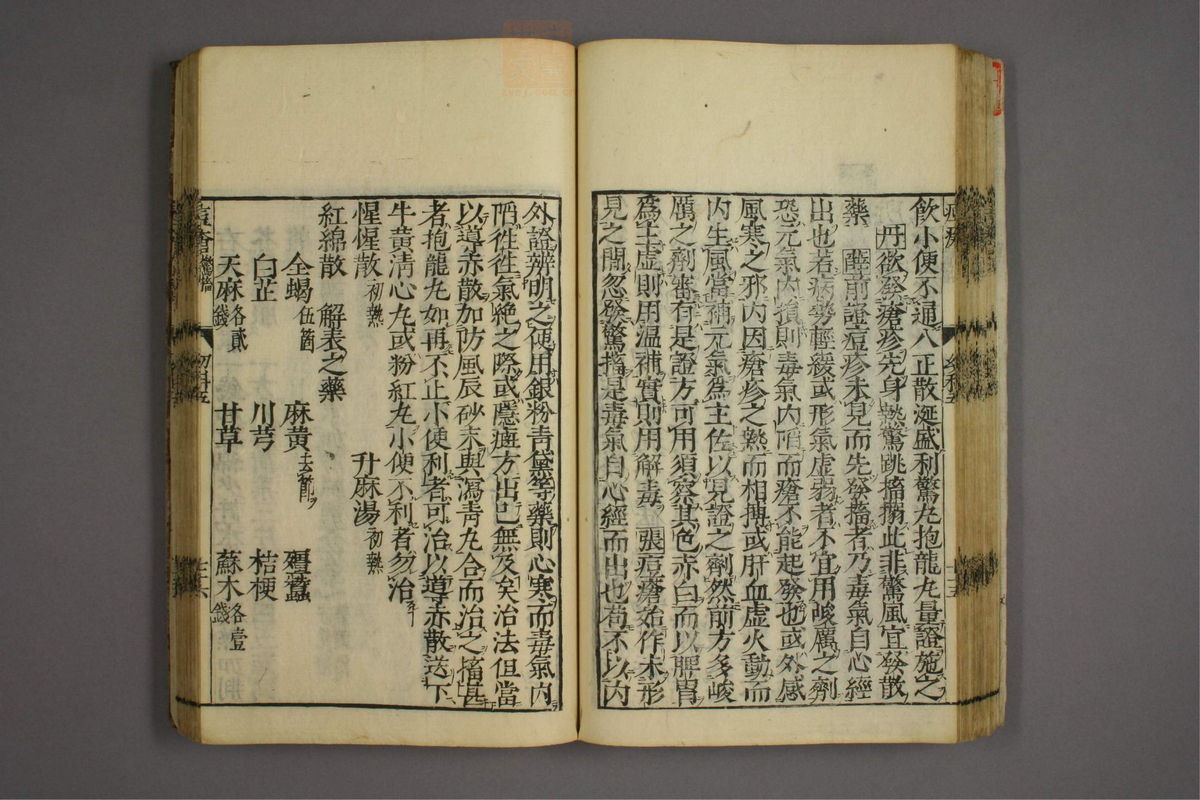 飲小便不通八正散涎盛利驚丸抱龍丸量證施之
丹欲發瘡疹先身熱驚跳搐搦此非驚風宜發散
藥 薛前證痘疹未見而先發搐者乃毒氣自心經
出也若病勢輕緩或形氣虛弱者不宜用峻厲之劑
恐元氣內損則毒氣內陷而瘡不能起發也或外感
風寒之邪內因瘡疹之熱而相搏或肝血虛火動而
內生風當補元氣爲主佐以見證之劑然前方多峻
厲之劑審有是證方可用須察其色赤白而以脾胃
爲主虛則用溫補實則用解毒 張痘瘡始作未形
見之間忽發驚搐是毒氣自心經而出也苟不以內
外證辨明之便用銀粉青黛等藥則心寒而毒氣內
陷徃徃氣絶之際或隱瘧方出已無及矣治法但當
以導赤散加防風辰砂末與瀉青丸合而治之搐甚
者抱龍丸如再不止小便利者可治以導赤散送下
牛黃清心丸或粉紅丸小便不利者勿治
惺惺散初熱 升麻湯初熱
紅綿散 解表之藥
全蝎伍箇 麻黃去節 殭蠶
白芷 川芎 桔梗
天麻各貳錢 甘草 蘇木各壹錢